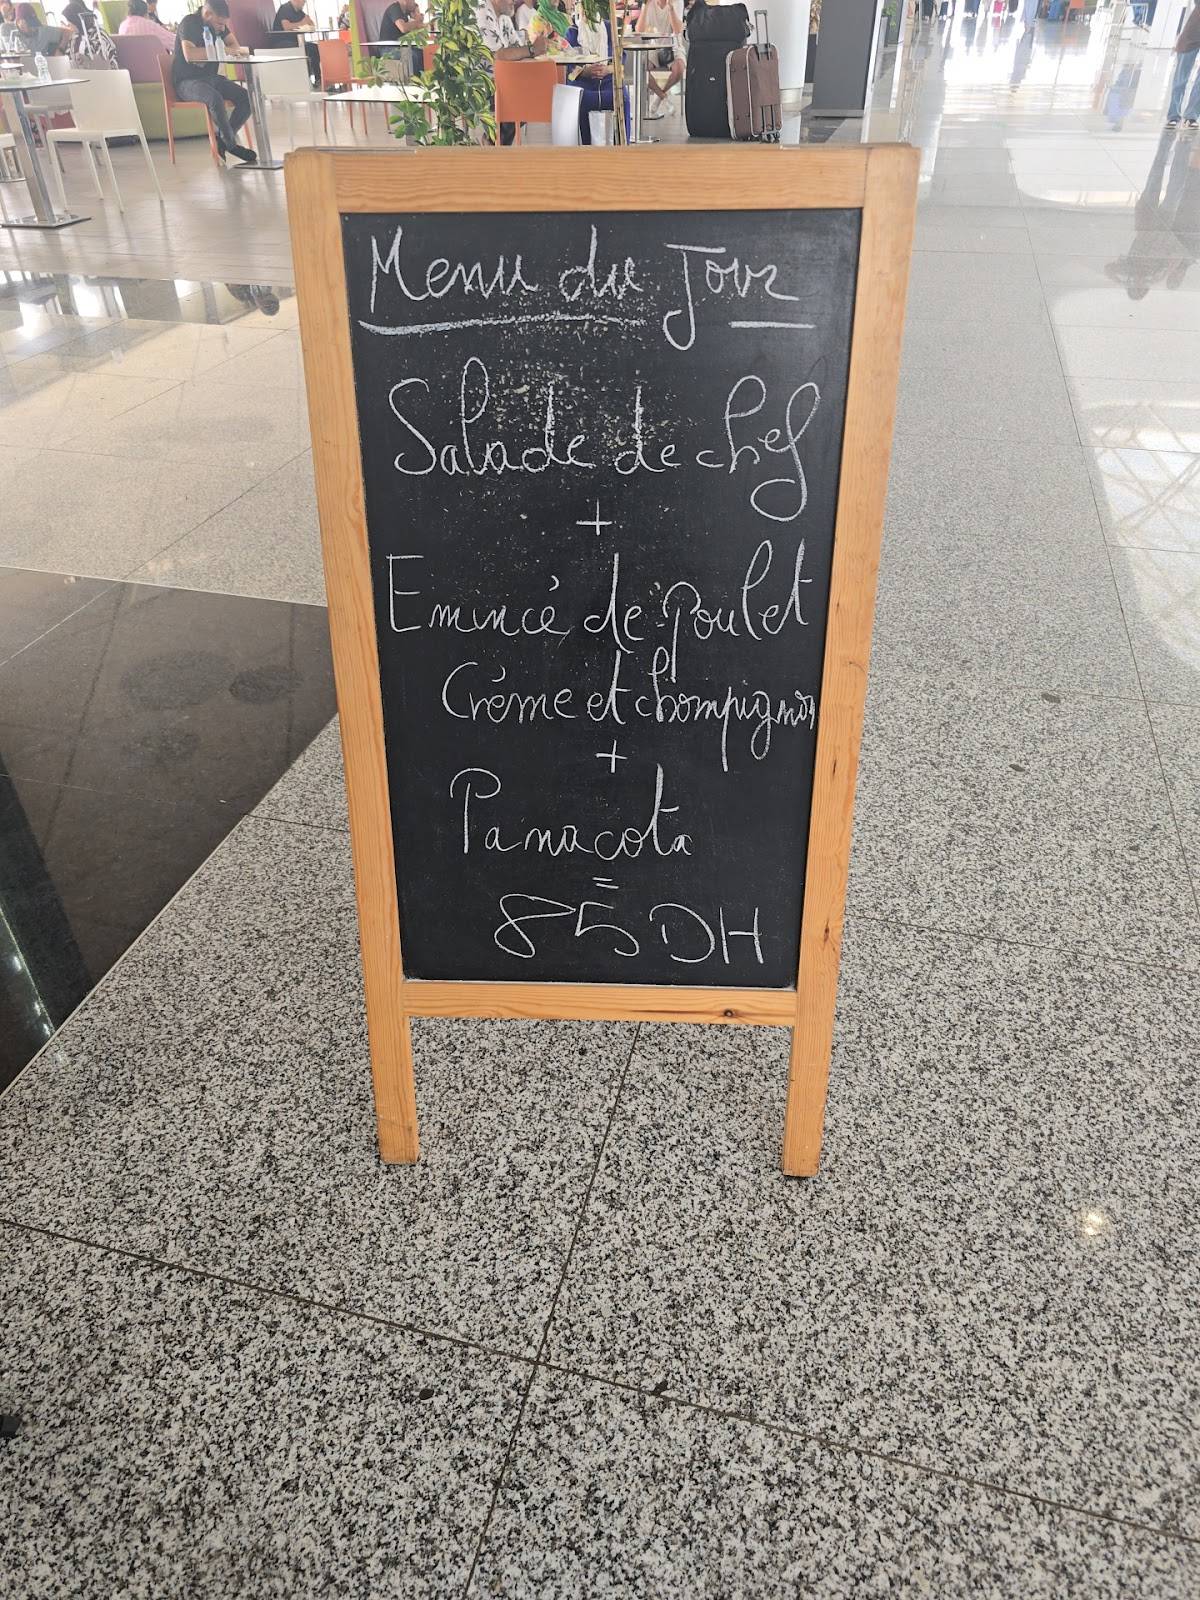 Menu du Jour
Salade de chef
+
Emincé de poulet
Crème et champignon
+
Panacota
=
85 DH